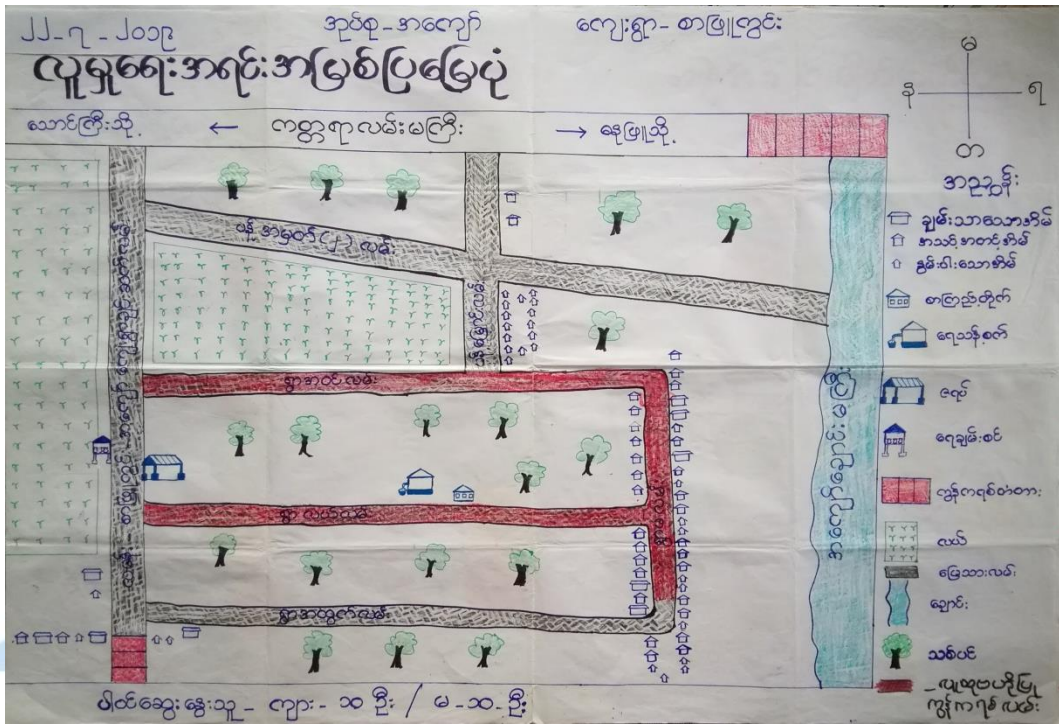 ၂၂-၇-၂၀၁၉
အုပ်စု-အကျော်
ကျေးရွာ-စာဖြူကွင်း
လူမှုရေးအရင်းအမြစ်ပြမြေပုံ
မ
န
ရ
တ
သောင်ကြီးသို့
← ကတ္တရာလမ်းမကြီး →
နေဖြူသို့
အညွှန်း
ချမ်းသာသောအိမ်
အသင့်အတင့်အိမ်
နွမ်းပါးသောအိမ်
စာကြည့်တိုက်
ရေသန့်စက်
ဇရပ်
ရေချမ်းစင်
ကွန်ကရစ်တံတား
လယ်
မြေသားလမ်း
ချောင်း
သစ်ပင်
ကွန်ကရစ်လမ်း
ပန်းအမှတ် (၂) လမ်း
ရွာအဝင်လမ်း
ရွာလယ်လမ်း
ရွာအထွက်လမ်း
အကျော်ချောင်းမကြီး
ပါဝင်ဆွေးနွေးသူ - ကျား - ၁၀ ဦး / မ - ၁၀ - ဦး